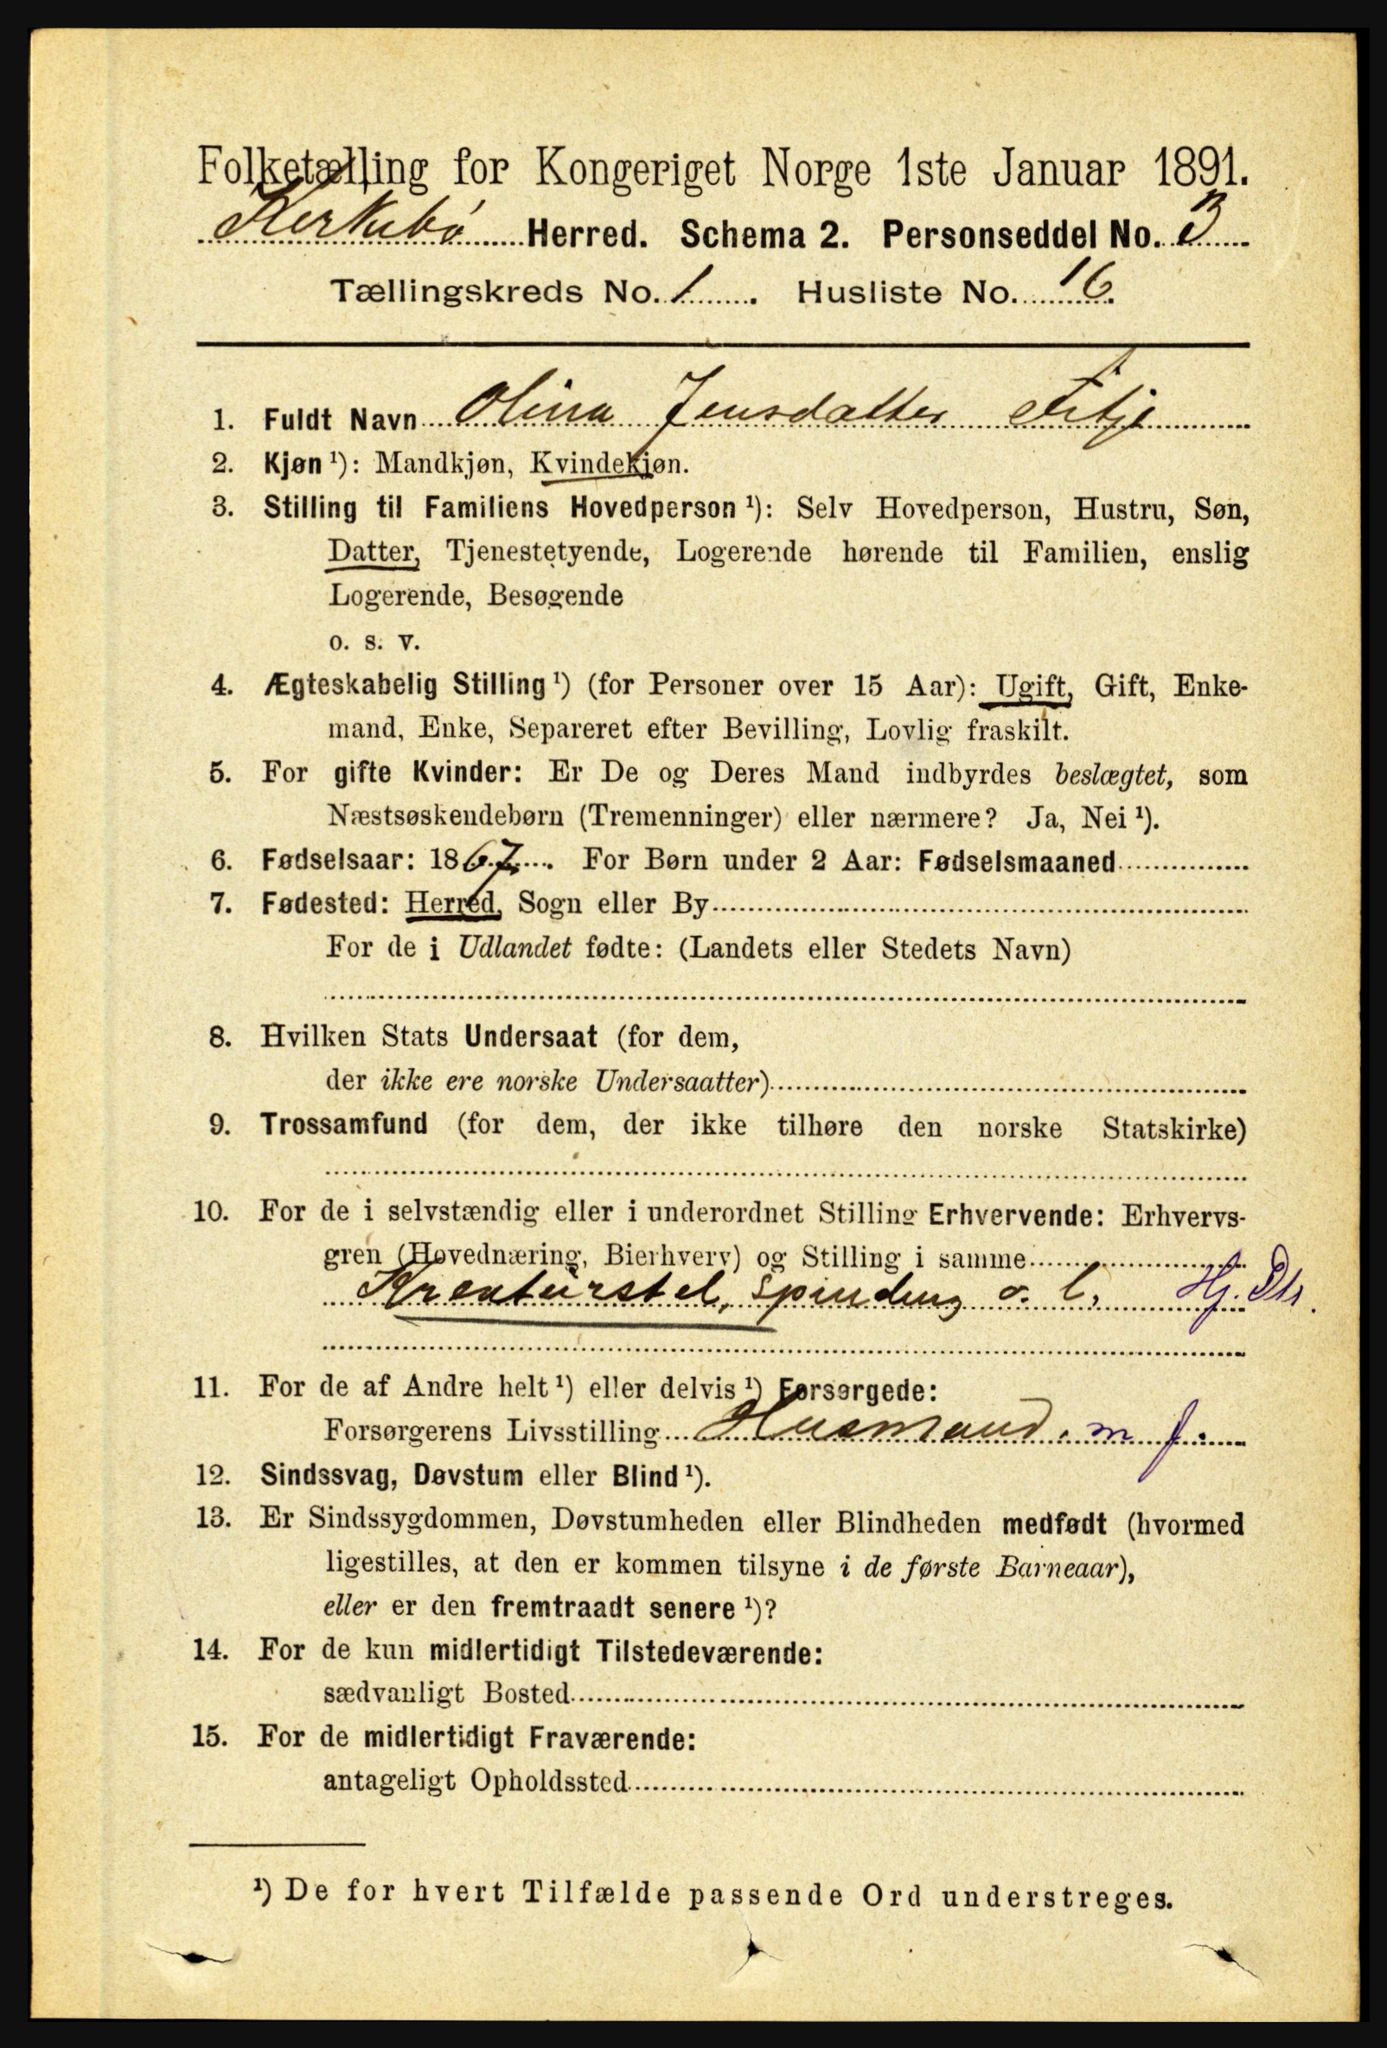 Folketælling for Kongeriget Norge 1ste Januar 1891.
Kirkebø Herred. Schema 2. Personseddel No. 3
Tællingskreds No. 1. Husliste No. 16.
1. Fuldt Navn Olina Jensdatter Fitje
2. Kjøn ¹): Mandkjøn, Kvindekjøn.
3. Stilling til Familiens Hovedperson ¹): Selv Hovedperson, Hustru, Søn,
Datter, Tjenestetyende, Logerende hørende til Familien, enslig
Logerende, Besøgende
o. s. v.
4. Ægteskabelig Stilling ¹) (for Personer over 15 Aar): Ugift, Gift, Enke-
mand, Enke, Separeret efter Bevilling, Lovlig fraskilt.
5. For gifte Kvinder: Er De og Deres Mand indbyrdes beslægtet, som
Næstsøskendebørn (Tremenninger) eller nærmere? Ja, Nei ¹).
6. Fødselsaar: 1867. For Børn under 2 Aar: Fødselsmaaned
7. Fødested: Herred, Sogn eller By
For de i Udlandet fødte: (Landets eller Stedets Navn)
8. Hvilken Stats Undersaat (for dem,
der ikke ere norske Undersaatter)
9. Trossamfund (for dem, der ikke tilhøre den norske Statskirke)
10. For de i selvstændig eller i underordnet Stilling Erhvervende: Erhvervs-
gren (Hovednæring, Bierhverv) og Stilling i samme
Kreaturstel, spinding o. l. Hj. Dtr.
11. For de af Andre helt ¹) eller delvis ¹) Forsørgede:
Forsørgerens Livsstilling Husmand. m j.
12. Sindssvag, Døvstum eller Blind ¹).
13. Er Sindssygdommen, Døvstumheden eller Blindheden medfødt (hvormed
ligestilles, at den er kommen tilsyne i de første Barneaar),
eller er den fremtraadt senere ¹)?
14. For de kun midlertidigt Tilstedeværende:
sædvanligt Bosted
15. For de midlertidigt Fraværende:
antageligt Opholdssted
¹) De for hvert Tilfælde passende Ord understreges.